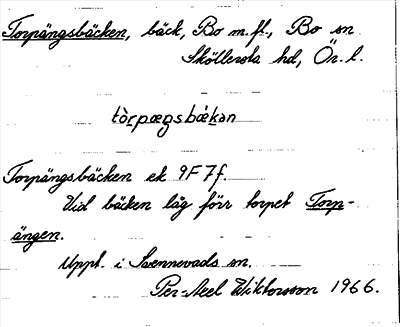 Torpängsbäcken, bäck, Bo m.fl., Bo sn
Sköllersta hd, Ör. l.
tòrpæŋsbǽkən
Torpängsbäcken ek 9F7f.
Vid bäcken låg förr torpet Torp-
ängen.
Uppt. i Svennevads sn.
Per-Axel Wiktorsson 1966.